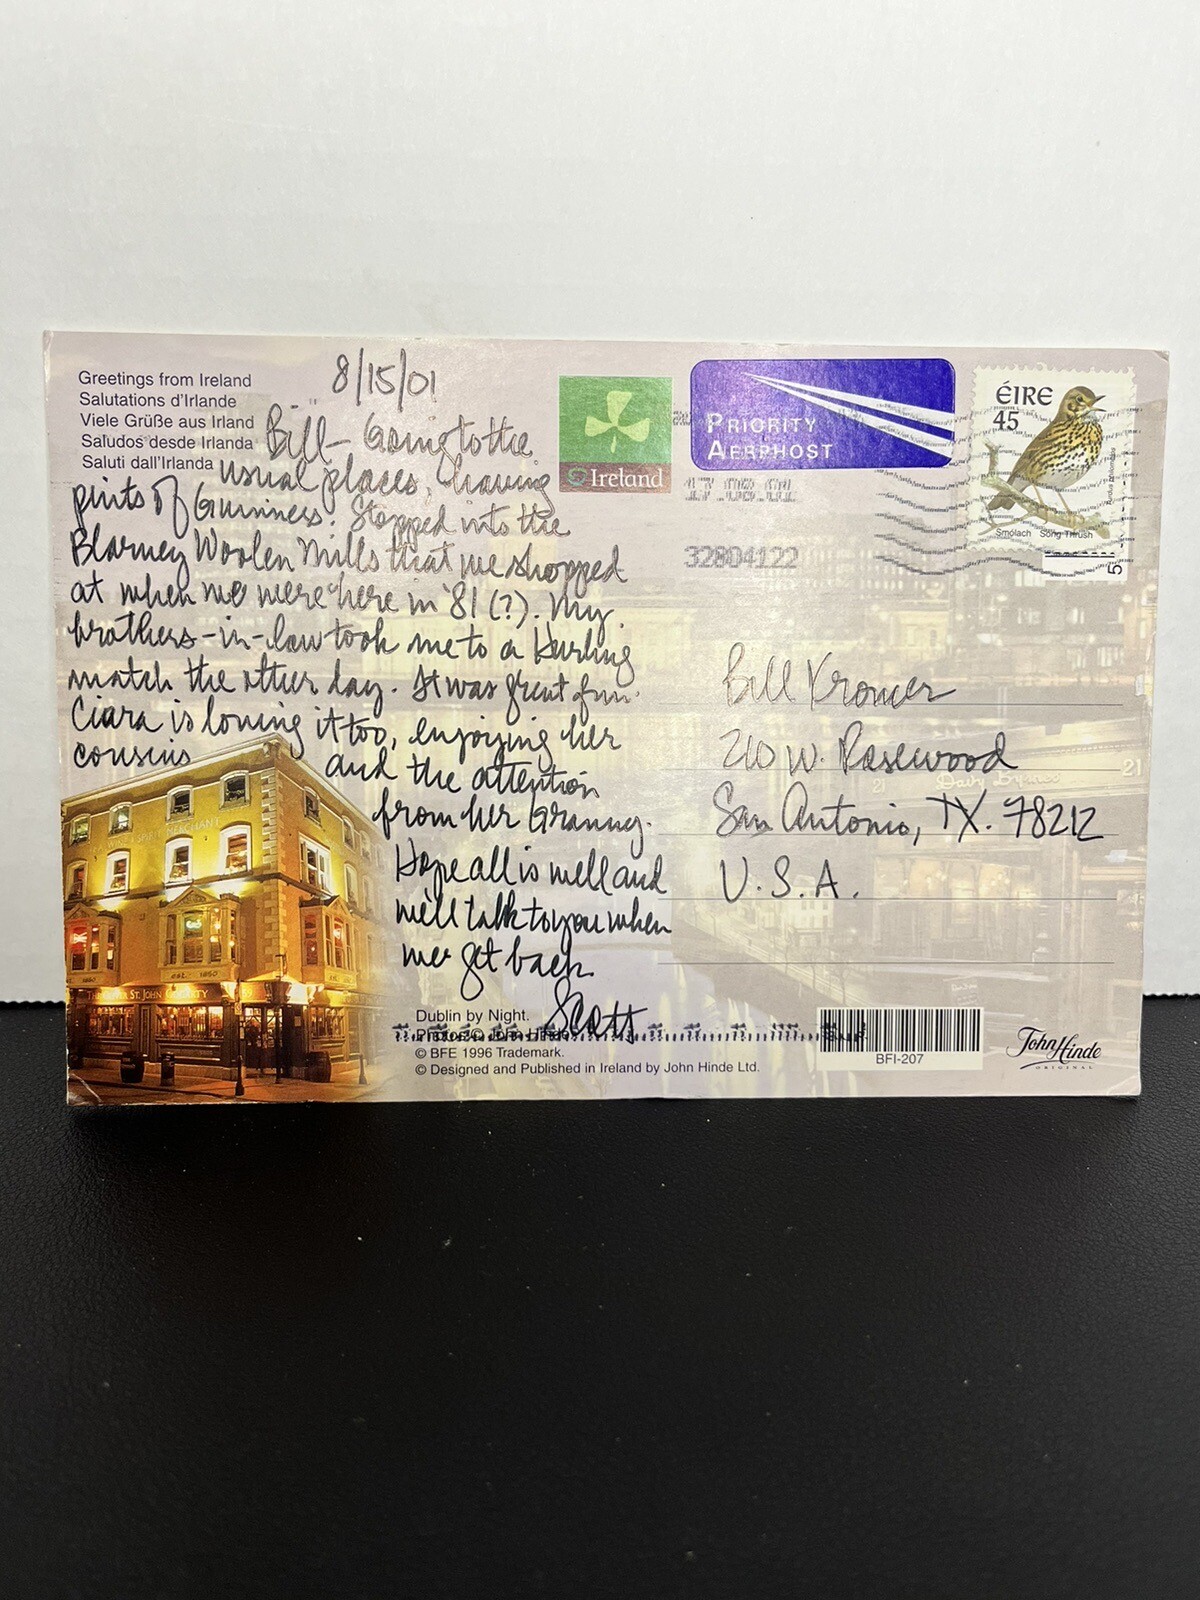 Greetings from Ireland
Salutations d'Irlande
Viele Grüße aus Irland
Saludos desde Irlanda
Saluti dall'Irlanda
8/15/01
Bill- Going to the
usual places, having
pints of Guinness. Stopped into the
Blarney Woolen Mills that we shopped
at when we were here in '81 (?). My
brothers-in-law took me to a Hurling
match the other day. It was great fun.
Ciara is loving it too, enjoying her
cousins and the attention
from her Granny.
Hope all is well and
we'll talk to you when
we get back.
Scott
Ireland
PRIORITY
AERPHOST
17.08.01
32804122
ÉIRE
45
Smólach Song Thrush
Bill Kromer
210 W. Rosewood
San Antonio, TX. 78212
U.S.A.
Davy Byrnes
21
21
SPIRIT MERCHANT
est. 1850
ST. JOHN GOGARTY
Dublin by Night.
© BFE 1996 Trademark.
© Designed and Published in Ireland by John Hinde Ltd.
BFI-207
John Hinde
ORIGINAL